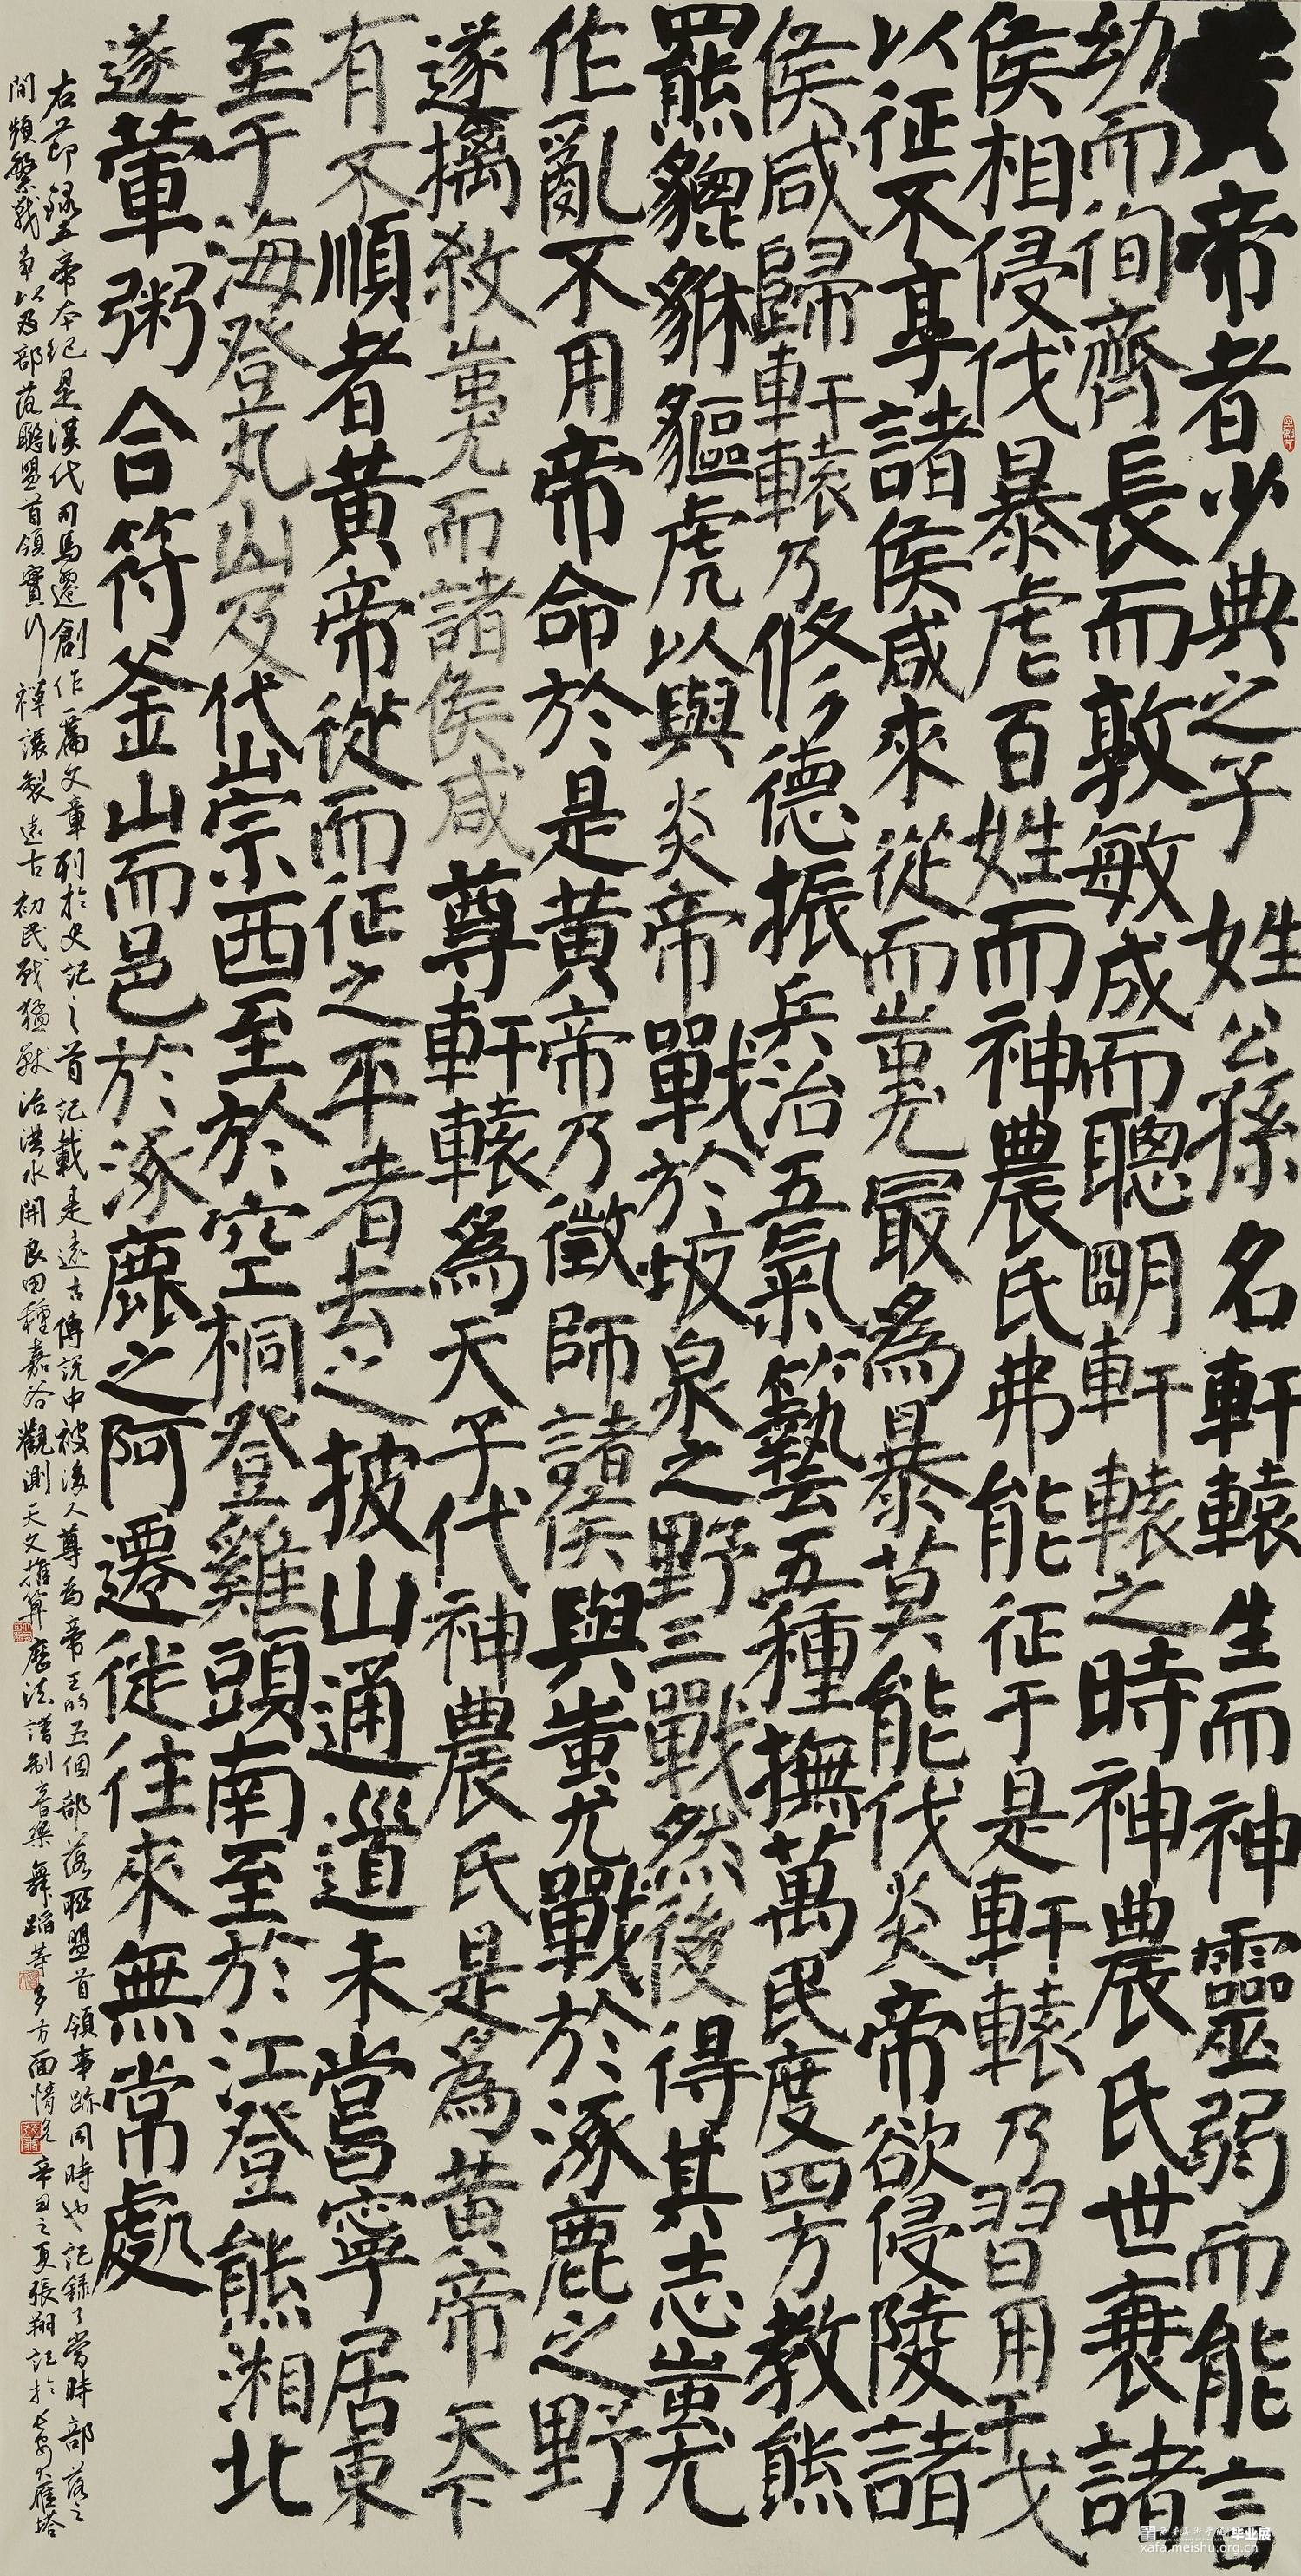 黃帝者少典之子姓公孫名軒轅生而神靈弱而能言
幼而徇齊長而敦敏成而聰明軒轅之時神農氏世衰諸
侯相侵伐暴虐百姓而神農氏弗能征于是軒轅乃習用干戈
以征不享諸侯咸來從而蚩尤最為暴莫能伐炎帝欲侵陵諸
侯咸歸軒轅乃修德振兵治五氣蓺五種撫萬民度四方教熊
羆貔貅貙虎以與炎帝戰於坂泉之野三戰然後得其志蚩尤
作亂不用帝命於是黃帝乃徵師諸侯與蚩尤戰於涿鹿之野
遂擒殺蚩尤而諸侯咸尊軒轅為天子代神農氏是為黃帝天下
有不順者黃帝從而征之平者去之披山通道未嘗寧居東
至于海登丸山及岱宗西至於空桐登雞頭南至於江登熊湘北
逐葷粥合符釜山而邑於涿鹿之阿遷徙往來無常處
右節錄五帝本紀是漢代司馬遷創作爲文章列於史記之首記載是遠古傳說中被後人尊為帝王的五個部落聯盟首領事跡同時也記錄了當時部落之
間頻繁戰爭以及部落聯盟首領實行禪讓製遠古初民戰猛獸治洪水開良田種嘉谷觀測天文推算歷法譜制音樂舞蹈等多方面情況辛丑之夏張翔記於長安大雁塔
毕业展
xafa.meishu.org.cn